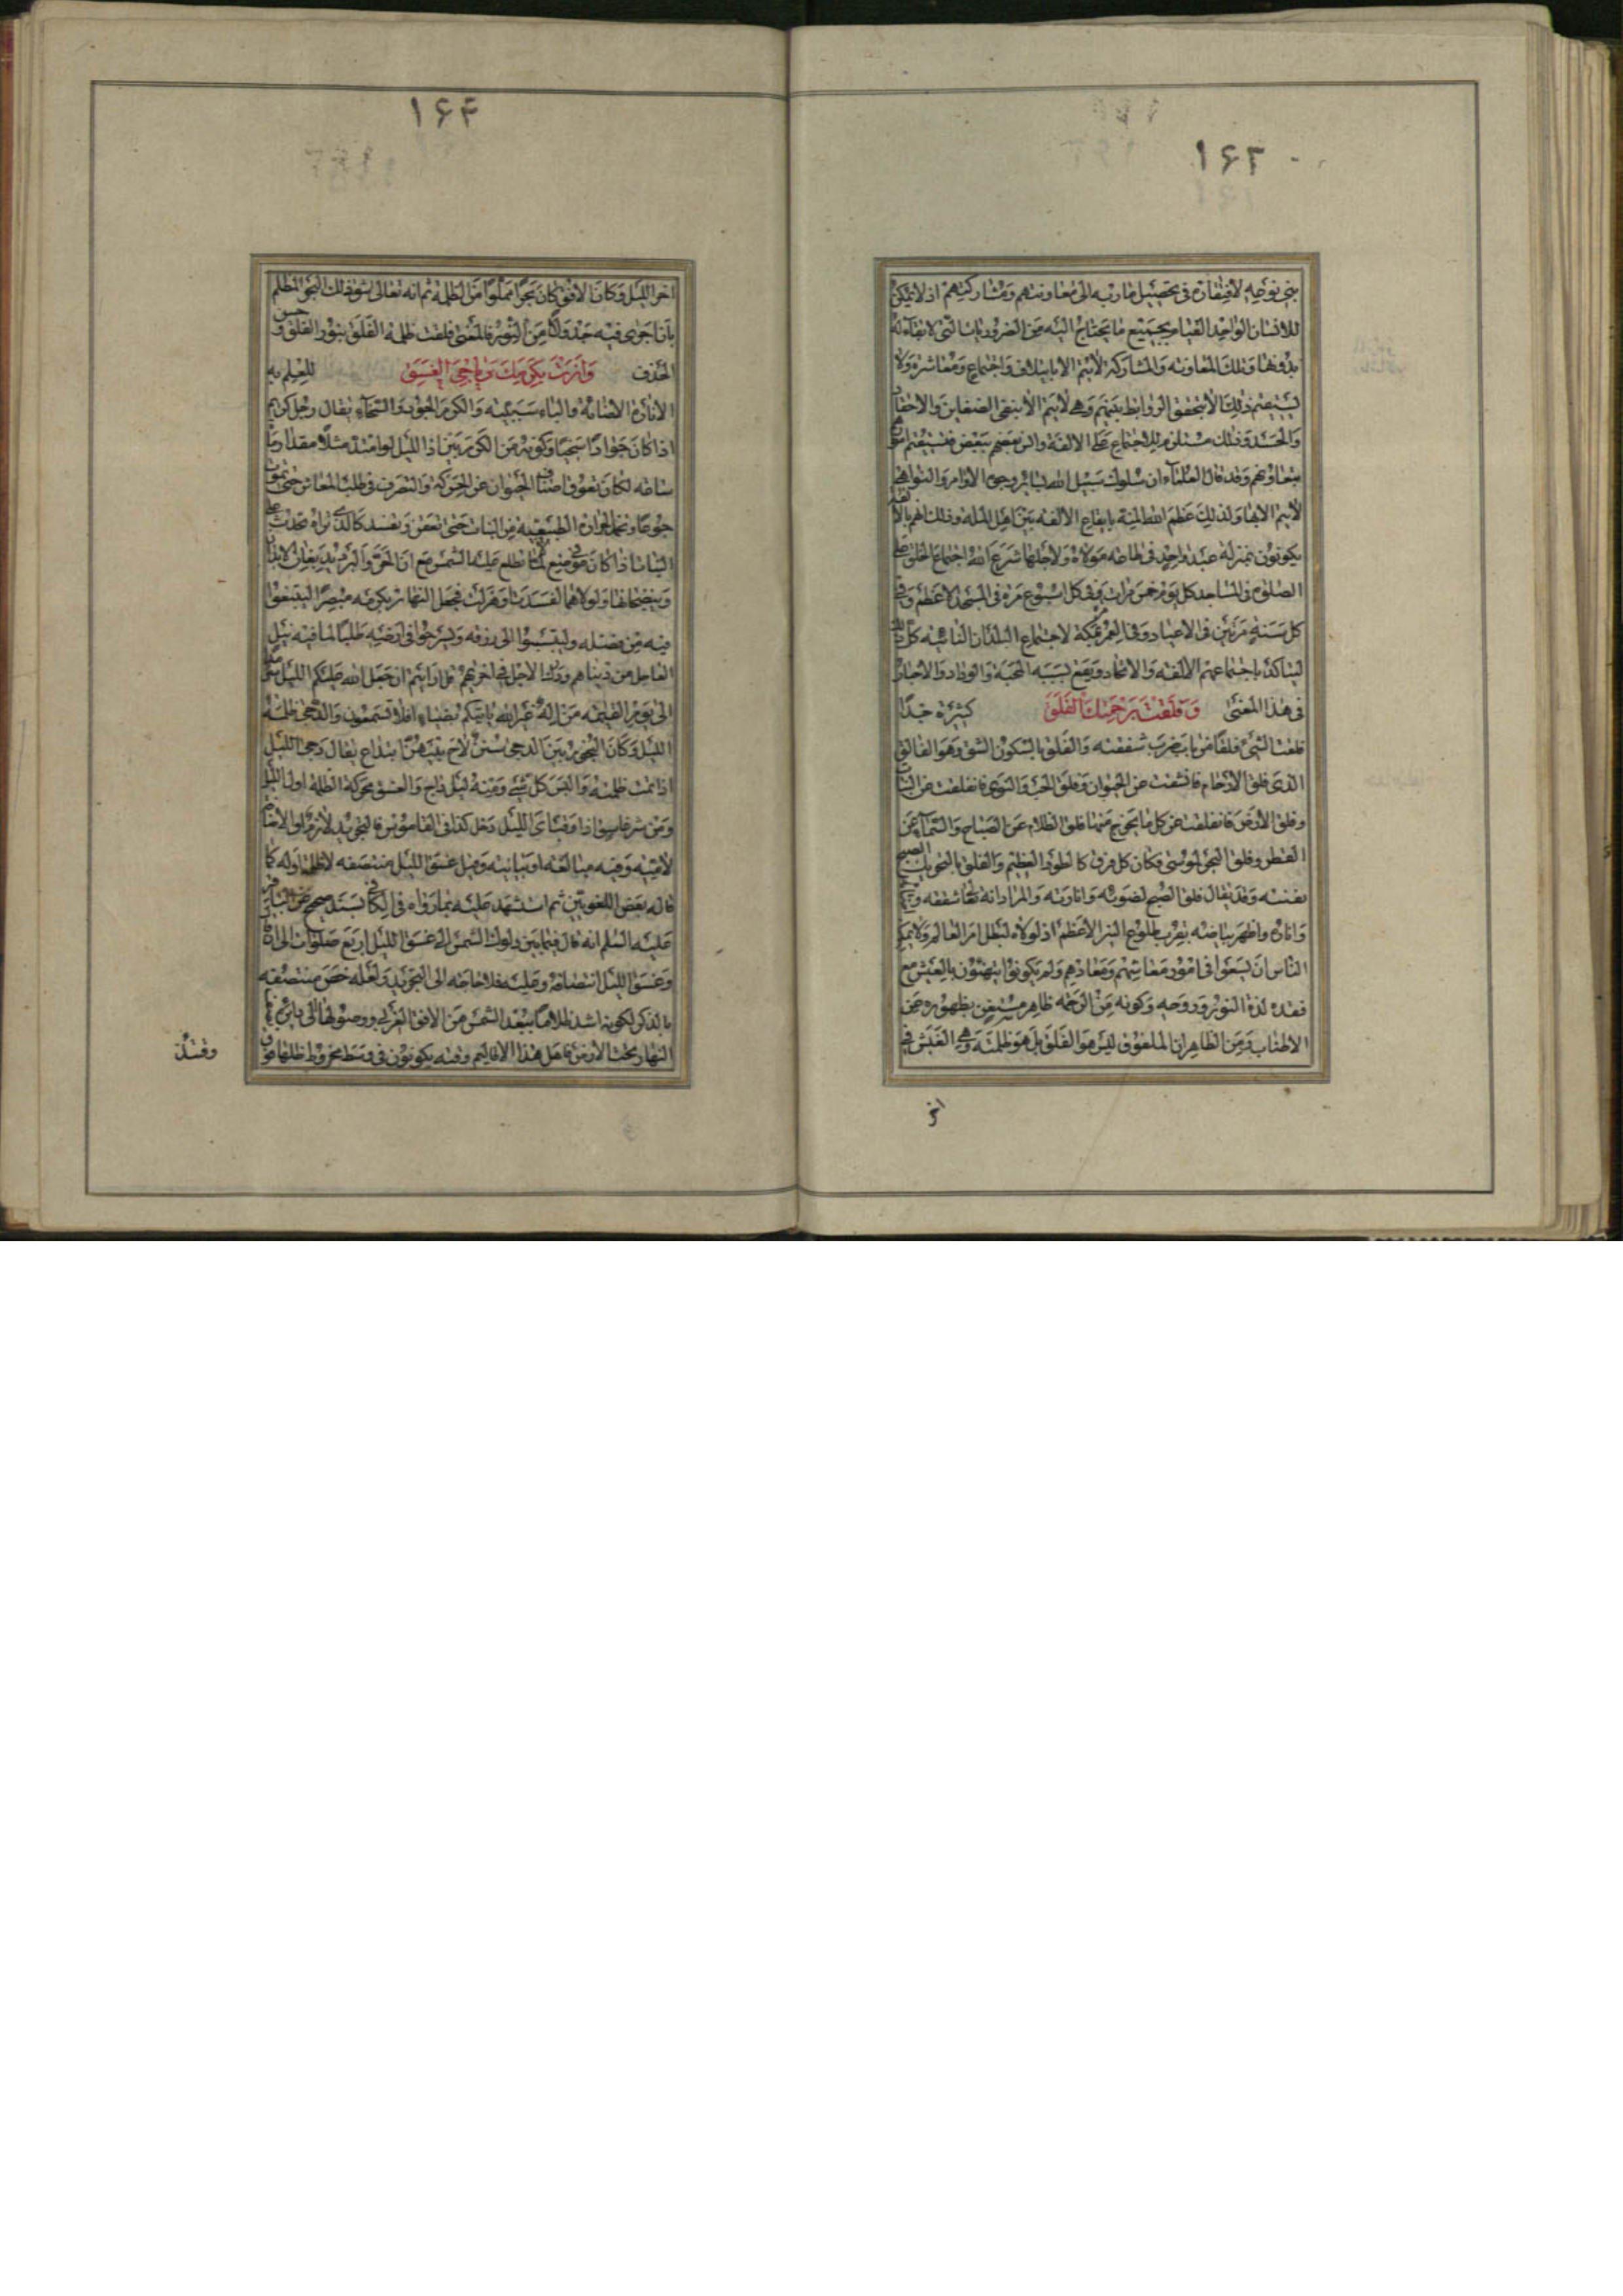 ۱۶۳
بنی نوعه لافتقاره فی تحصیل مآربه الی معاونتهم ومشارکتهم اذ لا یمکن
للانسان الواحد القیام بجمیع ما یحتاج الیه من الضروریات التی لا بقاء له
بدونها وتلک المعاونة والمشارکة لا یتم الا بایتلاف واجتماع ومعاشرة ولا
یستقیم ذلک الا بتحقق الروابط بینهم وهی لا یتم الا بنفی الضغاین والاحقاد
والحسد وذلک مستلزم للاجتماع علی الالفة والن بعضهم ببعض فیستقیم
بتعاونهم وقد قال العلماء ان سلوک سبیل الله لسایر وجوه الاوامر والنواهی
لا یتم الا بها ولذلک عظم الله المنة بایقاع الالفة بین اهل الملة وذلک لانهم بالالفة
یکونون بمنزلة عبد واحد فی طاعة مولاه ولاجلها شرع الله اجتماع الخلق علی
الصلوة فی المساجد کل یوم خمس مرات وفی کل اسبوع مرة فی المسجد الاعظم وفی
کل سنة مرتین فی الاعیاد وفی العمر مرة بمکة لاجتماع البلدان النائیة کل ذلک
لیتاکد باجتماعهم الالفة والاتحاد ویقع بسببه المحبة والوداد والاخبار
فی هذا المعنی وفلقت برحمتک الفلق کثیرة جدا
فلقت الشئ فلقا من باب ضرب شققته والفلق بالسکون الشق وهو الفالق
الذی فلق الارحام فانشقت عن الحیوان وفلق الحب والنوی فانفلقت عن النبات
وفلق الارض فانفلقت عن کل ما یخرج منها فلق الظلام عن الصباح والسماء عن
القطر وفلق البحر لموسی فکان کل فرق کالطود العظیم والفلق بالتحریک الصبح
بعینه وقد یقال فلق الصبح لضوئه وانارته والمراد انه تعالی شققه
واناره واظهر بیاضه بقرب طلوع النیر الاعظم اذ لولاه لبطل امر العالم ولا یمکن
الناس ان یسعوا فی امور معاشهم ومعادهم ولم یکونوا یتهنئون بالعیش مع
فقده لذة النور وروحه وکونه من الرحمة ظاهر مستغن بظهوره عن
الاطناب ومن الظاهر ان الملفوق لیس هو الفلق بل هو ظلمته وهی الغبش فی
اخر
۱۶۴
اخر اللیل وکان الافق کان بحرا مملوا من الظلمة ثم انه تعالی شق ذلک البحر المظلم
بان اجری فیه جدولا من النور فالمعنی فلقت ظلمة الفلق بنور الفلق وحسن
الحذف وانرت بکرمک دیاجی الغسق للعلم به
الانارة الاضاءة والباء سببیة والکرم الجود والسخاء یقال رجل کریم
اذا کان جوادا سخیا وکونه من الکرم بین اذ اللیل لو امتد مثلا مقدار
سامة لکان تعوق اصناف الحیوان عن الحرکة والتصرف فی طلب المعاش حتی تموت
جوعا وتخمد الحرارة الطبیعیة من النبات حتی تعفن وتفسد کالذی تراه تحدث علی
النبات اذا کان فی موضع لا تطلع علیه الشمس مع ان الحر والبرد یدبغان الابدان
وینضجانها ولولاهما لفسدت وهزلت فجعل النهار بکرمه مبصرا لیبتغوا
فیه من فضله ولیتسببوا الی رزقه ویسرحوا فی ارضه طلبا لما فیه نیل
العاجل من دنیاهم ودرک الاجل فی اخریهم قل ارایتم ان جعل الله علیکم اللیل سرمدا
الی یوم القیمة من اله غیر الله یاتیکم بضیاء افلا تسمعون والدجی ظلمة
اللیل وکان النجوم بین الدجی سنن لاح بینهن ابتداع یقال دجی اللیل
اذا تمت ظلمته والبس کل شئ ومنه لیل داج والغسق محرکة الظلمة اول اللیل
ومن شر غاسق اذا وقب ای اللیل دخل کذا فی القاموس فالتجرید لازم او الاضافة
لامیة وفیه مبالغة او بیانیة وقیل غسق اللیل منتصفه لا ظلمة اوله کما
قاله بعض اللغویین ثم استشهد علیه بما رواه فی الکافی بسند صحیح عن الباقر
علیه السلم انه قال فیما بین دلوک الشمس الی غسق اللیل اربع صلوات الی ان قال
وغسق اللیل انتصافه وعلیه فلا حاجة الی التجرید ولعله خص منتصفه
بالذکر لکونه اشد ظلاما لبعد الشمس من الافق الغربی ووصولها الی دایرة نصف
النهار تحت الارض فاهل هذا الاقالیم وقته یکونون فی وسط مخروط ظلها
وقتئذ